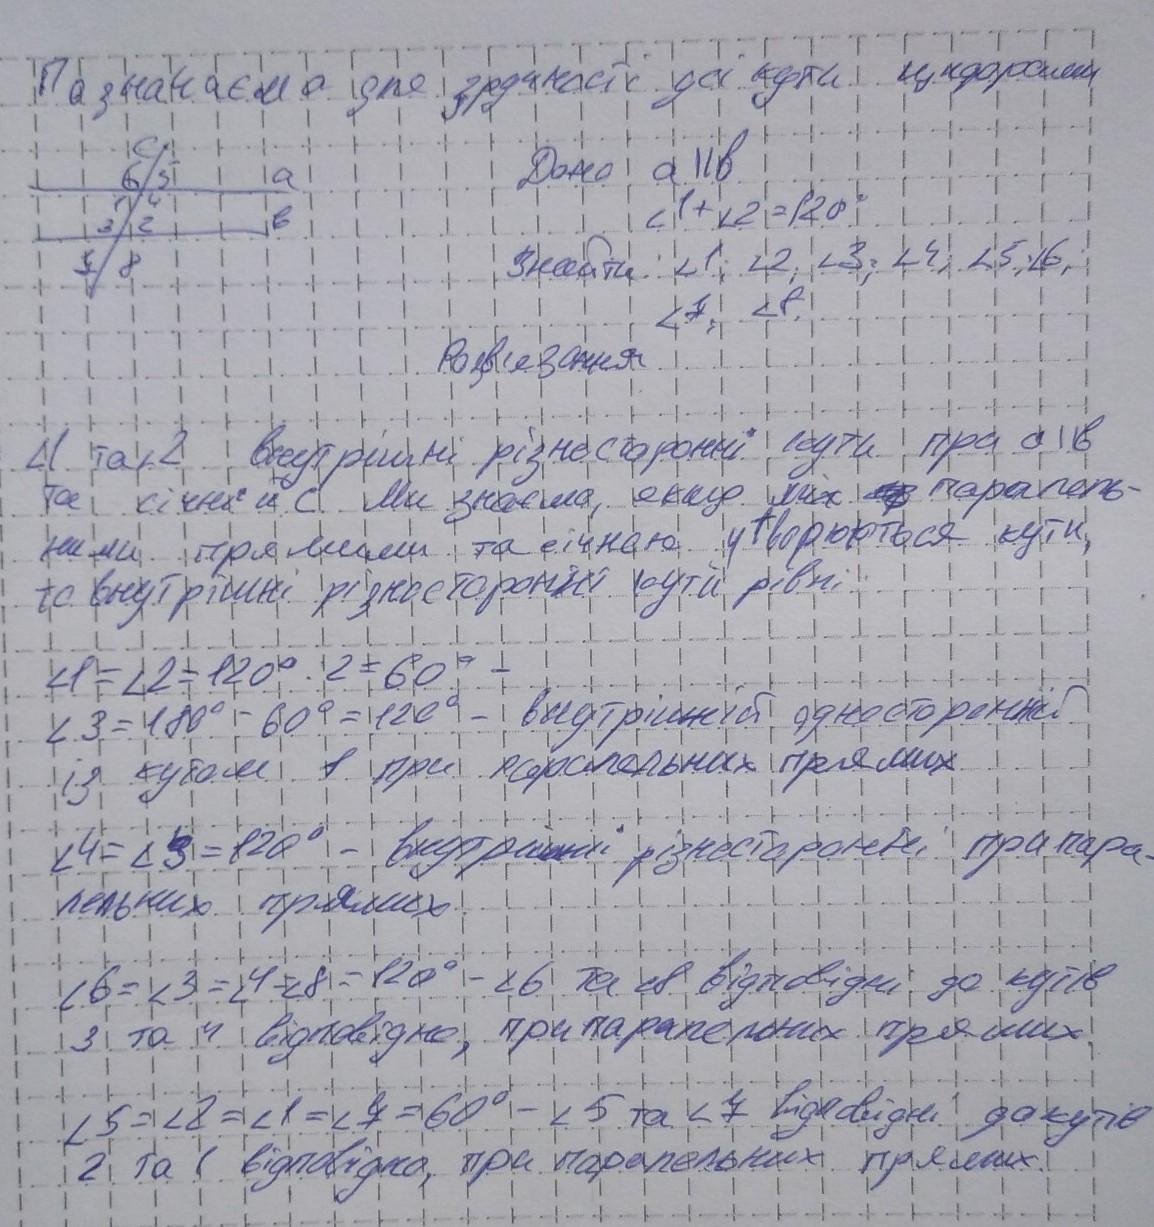 Пазначаємо для зручності усі кути цифрами
c
6 5 a
1 4
3 2 в
7 8
Дано a || в
∠1 + ∠2 = 120°
Знайти: ∠1; ∠2; ∠3; ∠4; ∠5; ∠6,
∠7; ∠8.
Розв'язання
∠1 та ∠2 внутрішні різносторонні кути при a || в
та січній с. Ми знаємо, якщо між паралель-
ними прямими та січною утворюються кути,
то внутрішні різносторонні кути рівні.
∠1 = ∠2 = 120° : 2 = 60° –
∠3 = 180° – 60° = 120° – внутрішній односторонній
із кутом 1 при паралельних прямих
∠4 = ∠3 = 120° – внутрішні різносторонні при пара-
лельних прямих.
∠6 = ∠3 = ∠4 = ∠8 = 120° – ∠6 та ∠8 відповідні до кутів
3 та 4 відповідно, при паралельних прямих.
∠5 = ∠2 = ∠1 = ∠7 = 60° – ∠5 та ∠7 відповідні до кутів
2 та 1 відповідно, при паралельних прямих.